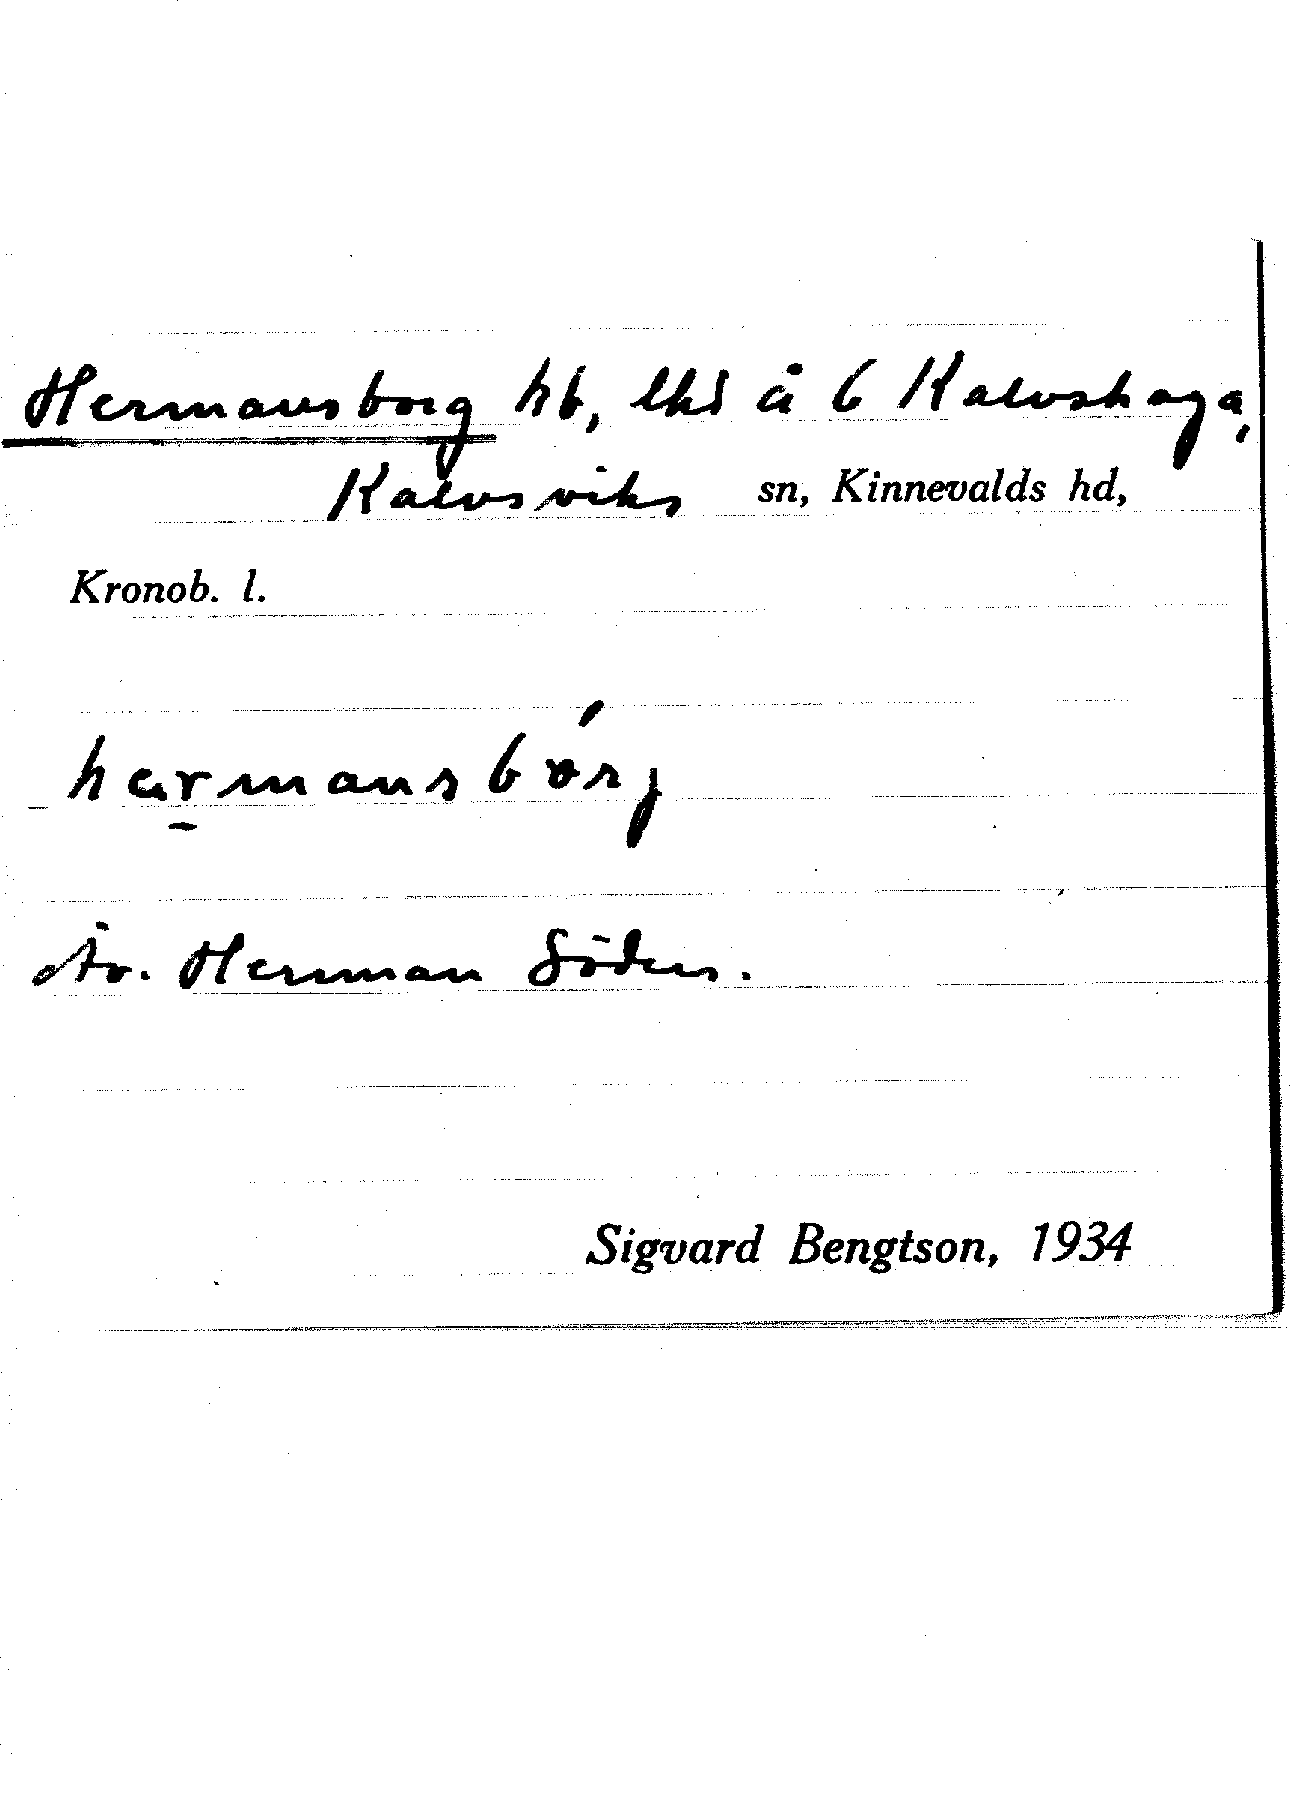 Hermansborg hb, lhs å 6 Kalvshaga,
Kalvsviks sn, Kinnevalds hd,
Kronob. l.
harmansbórj
Äv. Herman
Sigvard Bengtson, 1934